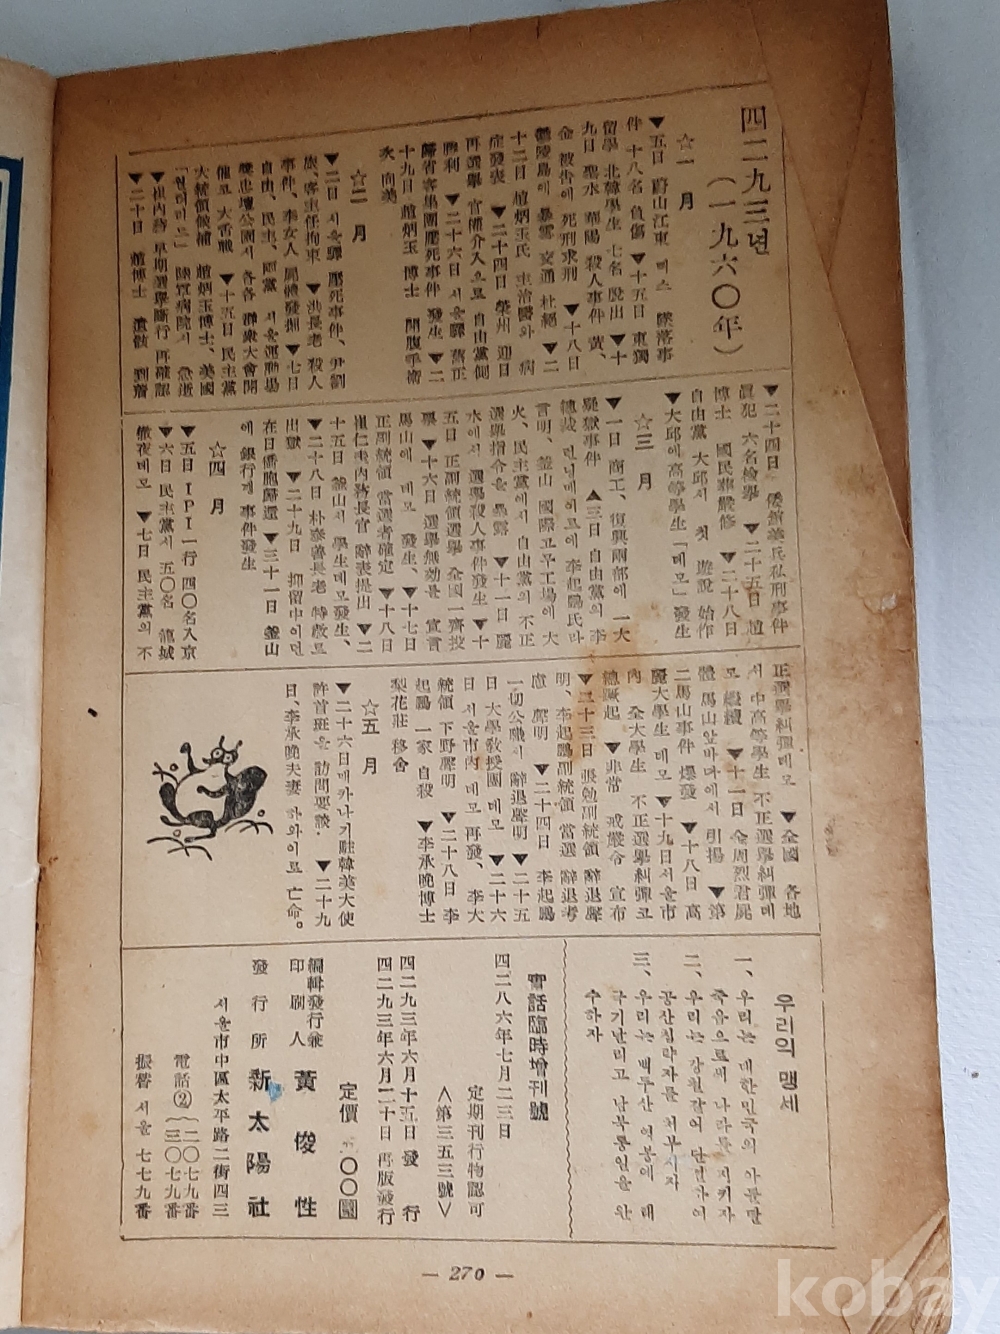 四二九三년
(一九六〇年)
☆一 月
▼五日 蔚山江東 뻐스 墜落事
件 十八名 負傷 ▼十五日 東獨
留學 北韓學生 七名 脫出 ▼十
九日 聖水 華陽 殺人事件 黃、
金 被告에 死刑求刑 ▼十八日
鬱陵島에 暴雪 交通 杜絕 ▼二
十二日 趙炳玉氏 主治醫와 病
症發表 ▼二十四日 榮州 迎日
再選擧 官權介入으로 自由黨側
勝利 ▼二十六日 서울驛 舊正
歸省客集團壓死事件 發生 ▼二
十九日 趙炳玉 博士 開腹手術
次 向美
☆二 月
▼二日 서울驛 壓死事件、尹副
驛、客主任拘束 ▼洪長老 殺人
事件、李女人 屍體發掘 ▼七日
自由、民主、兩黨 서울運動場
奬忠壇公園서 各各 群衆大會開
催코 大舌戰 ▼十五日 民主黨
大統領候補 趙炳玉博士、美國
陸軍病院서 急逝
▼崔內務 早期選擧斷行 再確認
▼二十日 趙博士 遺骸 到着
▼二十四日
眞犯 六名檢擧 ▼二十五日 趙
博士 國民葬嚴修 ▼二十八日
自由黨 大邱서 첫 遊說 始作
▼大邱에高等學生「데모」發生
☆三 月
▼一日 商工、復興兩部에 一大
疑獄事件 ▲三日 自由黨의 李
總裁 런닝메이트에 李起鵬氏라
言明、釜山 國際고무工場에 大
火、民主黨에서 自由黨의 不正
選擧指令을 暴露 ▼十一日 麗
水에서 選擧殺人事件發生 ▼十
五日 正副統領選擧 全國一齊投
票 ▼十六日 選擧無効를 宣言
馬山에 데모 發生、▼十七日
正副統領 當選者確定 ▼十八日
崔仁圭內務長官 辭表提出 ▼二
十五日 釜山서 學生데모發生、
▼二十八日 朴泰善長老 特赦로
出獄 ▼二十九日 抑留中이던
在日僑胞歸還 ▼三十一日 釜山
에 銀行갱 事件發生
☆四 月
▼五日 IPI一行 四〇名入京
▼六日 民主黨서 五〇名 龍城
徹夜데모 ▼七日 民主黨의 不
正選擧糾彈데모 ▼全國 各地
서 中高等學生 不正選擧糾彈데
모 繼續 ▼十一日 金周烈君屍
體 馬山앞바다에서 引揚 ▼第
二馬山事件 爆發 ▼十八日 高
麗大學生 데모 ▼十九日서울市
內 全大學生 不正選擧糾彈코
總蹶起 ▼非常 戒嚴令 宣布
▼二十三日 張勉副統領 辭退聲
明、李起鵬副統領 當選 辭退考
慮 聲明 ▼二十四日 李起鵬
一切公職서 辭退聲明 ▼二十五
日 大學敎授團 데모 ▼二十六
日 서울市內 데모 再發、李大
統領 下野聲明 ▼二十八日 李
起鵬 一家 自殺 ▼李承晚博士
梨花莊 移舍
☆五 月
▼二十六日매카나기駐韓美大使
許首班을 訪問要談 ▼二十九
日、李承晚夫妻 하와이로 亡命。
우리의 맹세
一、우리는 대한민국의 아들딸
죽음으로써 나라를 지키자
二、우리는 강철같이 단결하여
공산침략자를 쳐부시자
三、우리는 백두산 영봉에 태
극기날리고 남북통일을 완
수하자
實話臨時增刊號
四二八六年七月二三日
定期刊行物認可
<第三五三號>
四二九三年六月十五日 發 行
四二九三年六月二十日 再版發行
定價 〇〇圜
編輯發行兼
印刷人 黃 俊 性
發行所 新太陽社
서울市中區太平路二街四三
電話②(二〇七九番
三〇七九番)
振替 서울 七七九番
— 270 —
kobay